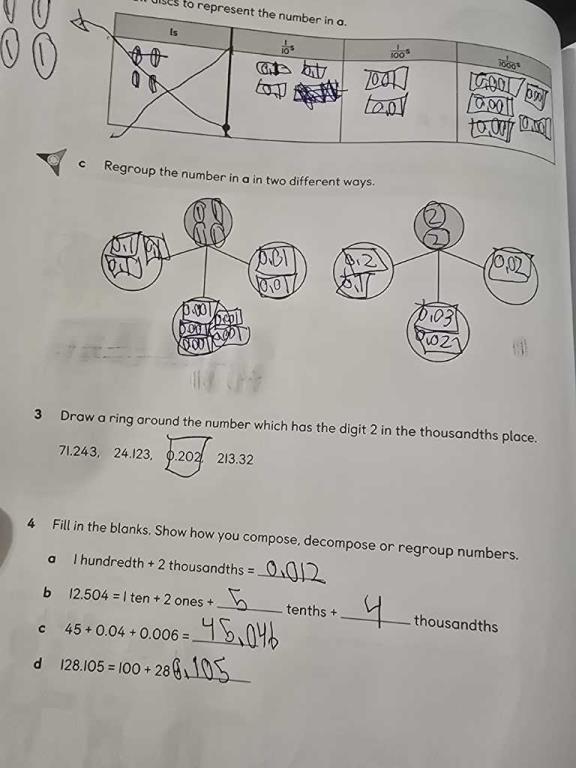 discs to represent the number in a.
1s 1/10s 1/100s 1/1000s
0.1 0.1 0.01 0.001 0.001
0.1 0.01 0.001
0.001 0.001
c Regroup the number in a in two different ways.
1 1 2
1 1 2
0.1 0.1 0.01 0.2 0.02
0.1 0.01 0.1
0.001 0.03
0.001 0.001 0.02
0.001 0.001
3 Draw a ring around the number which has the digit 2 in the thousandths place.
71.243, 24.123, 0.202, 213.32
4 Fill in the blanks. Show how you compose, decompose or regroup numbers.
a 1 hundredth + 2 thousandths = 0.012
b 12.504 = 1 ten + 2 ones + 5 tenths + 4 thousandths
c 45 + 0.04 + 0.006 = 45.046
d 128.105 = 100 + 28 0.105